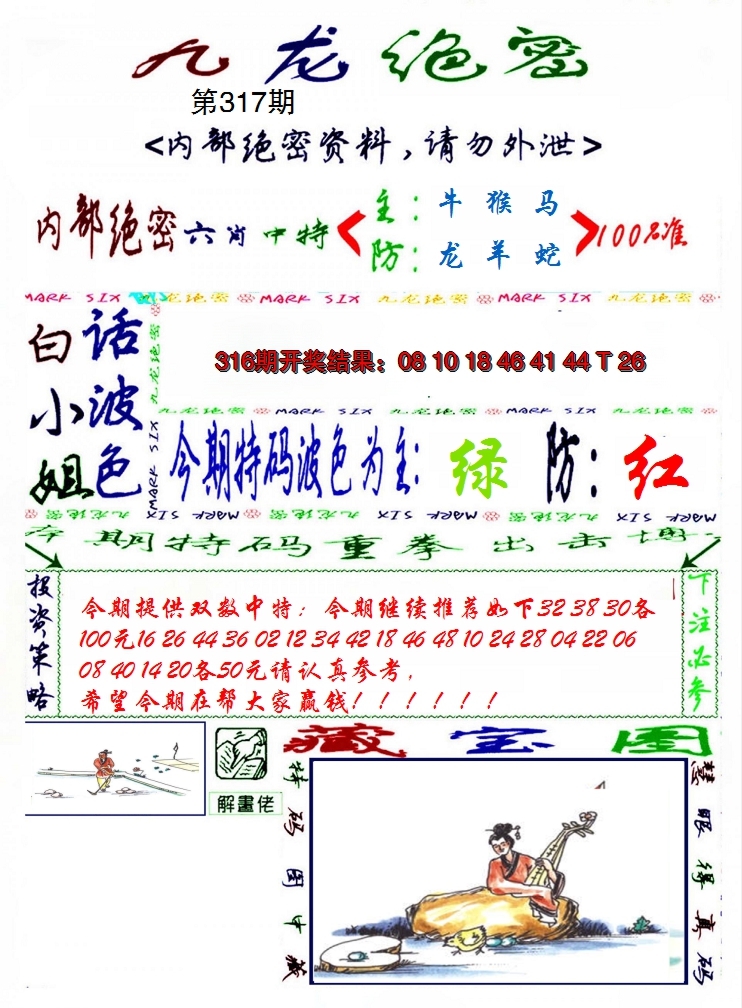 九龙绝密
第317期
<内部绝密资料,请勿外泄>
内部绝密六肖中特
主：牛 猴 马
防：龙 羊 蛇
100%准
MARK SIX 九龙绝密 MARK SIX 九龙绝密 MARK SIX 九龙绝密
白小姐
话波色
九龙绝密 MARK SIX
316期开奖结果：08 10 18 46 41 44 T 26
九龙绝密 MARK SIX 九龙绝密 MARK SIX 九龙绝密
今期特码波色为主：绿 防：红
MARK SIX 九龙绝密 MARK SIX 九龙绝密 MARK SIX
本期特码重拳出击博
投资策略
今期提供双数中特；今期继续推荐如下32 38 30各
100元16 26 44 36 02 12 34 42 18 46 48 10 24 28 04 22 06
08 40 14 20各50元请认真参考,
希望今期在帮大家赢钱！！！！！！
下注必参
藏宝图
解畫佬
特码图中藏
慧眼得真码